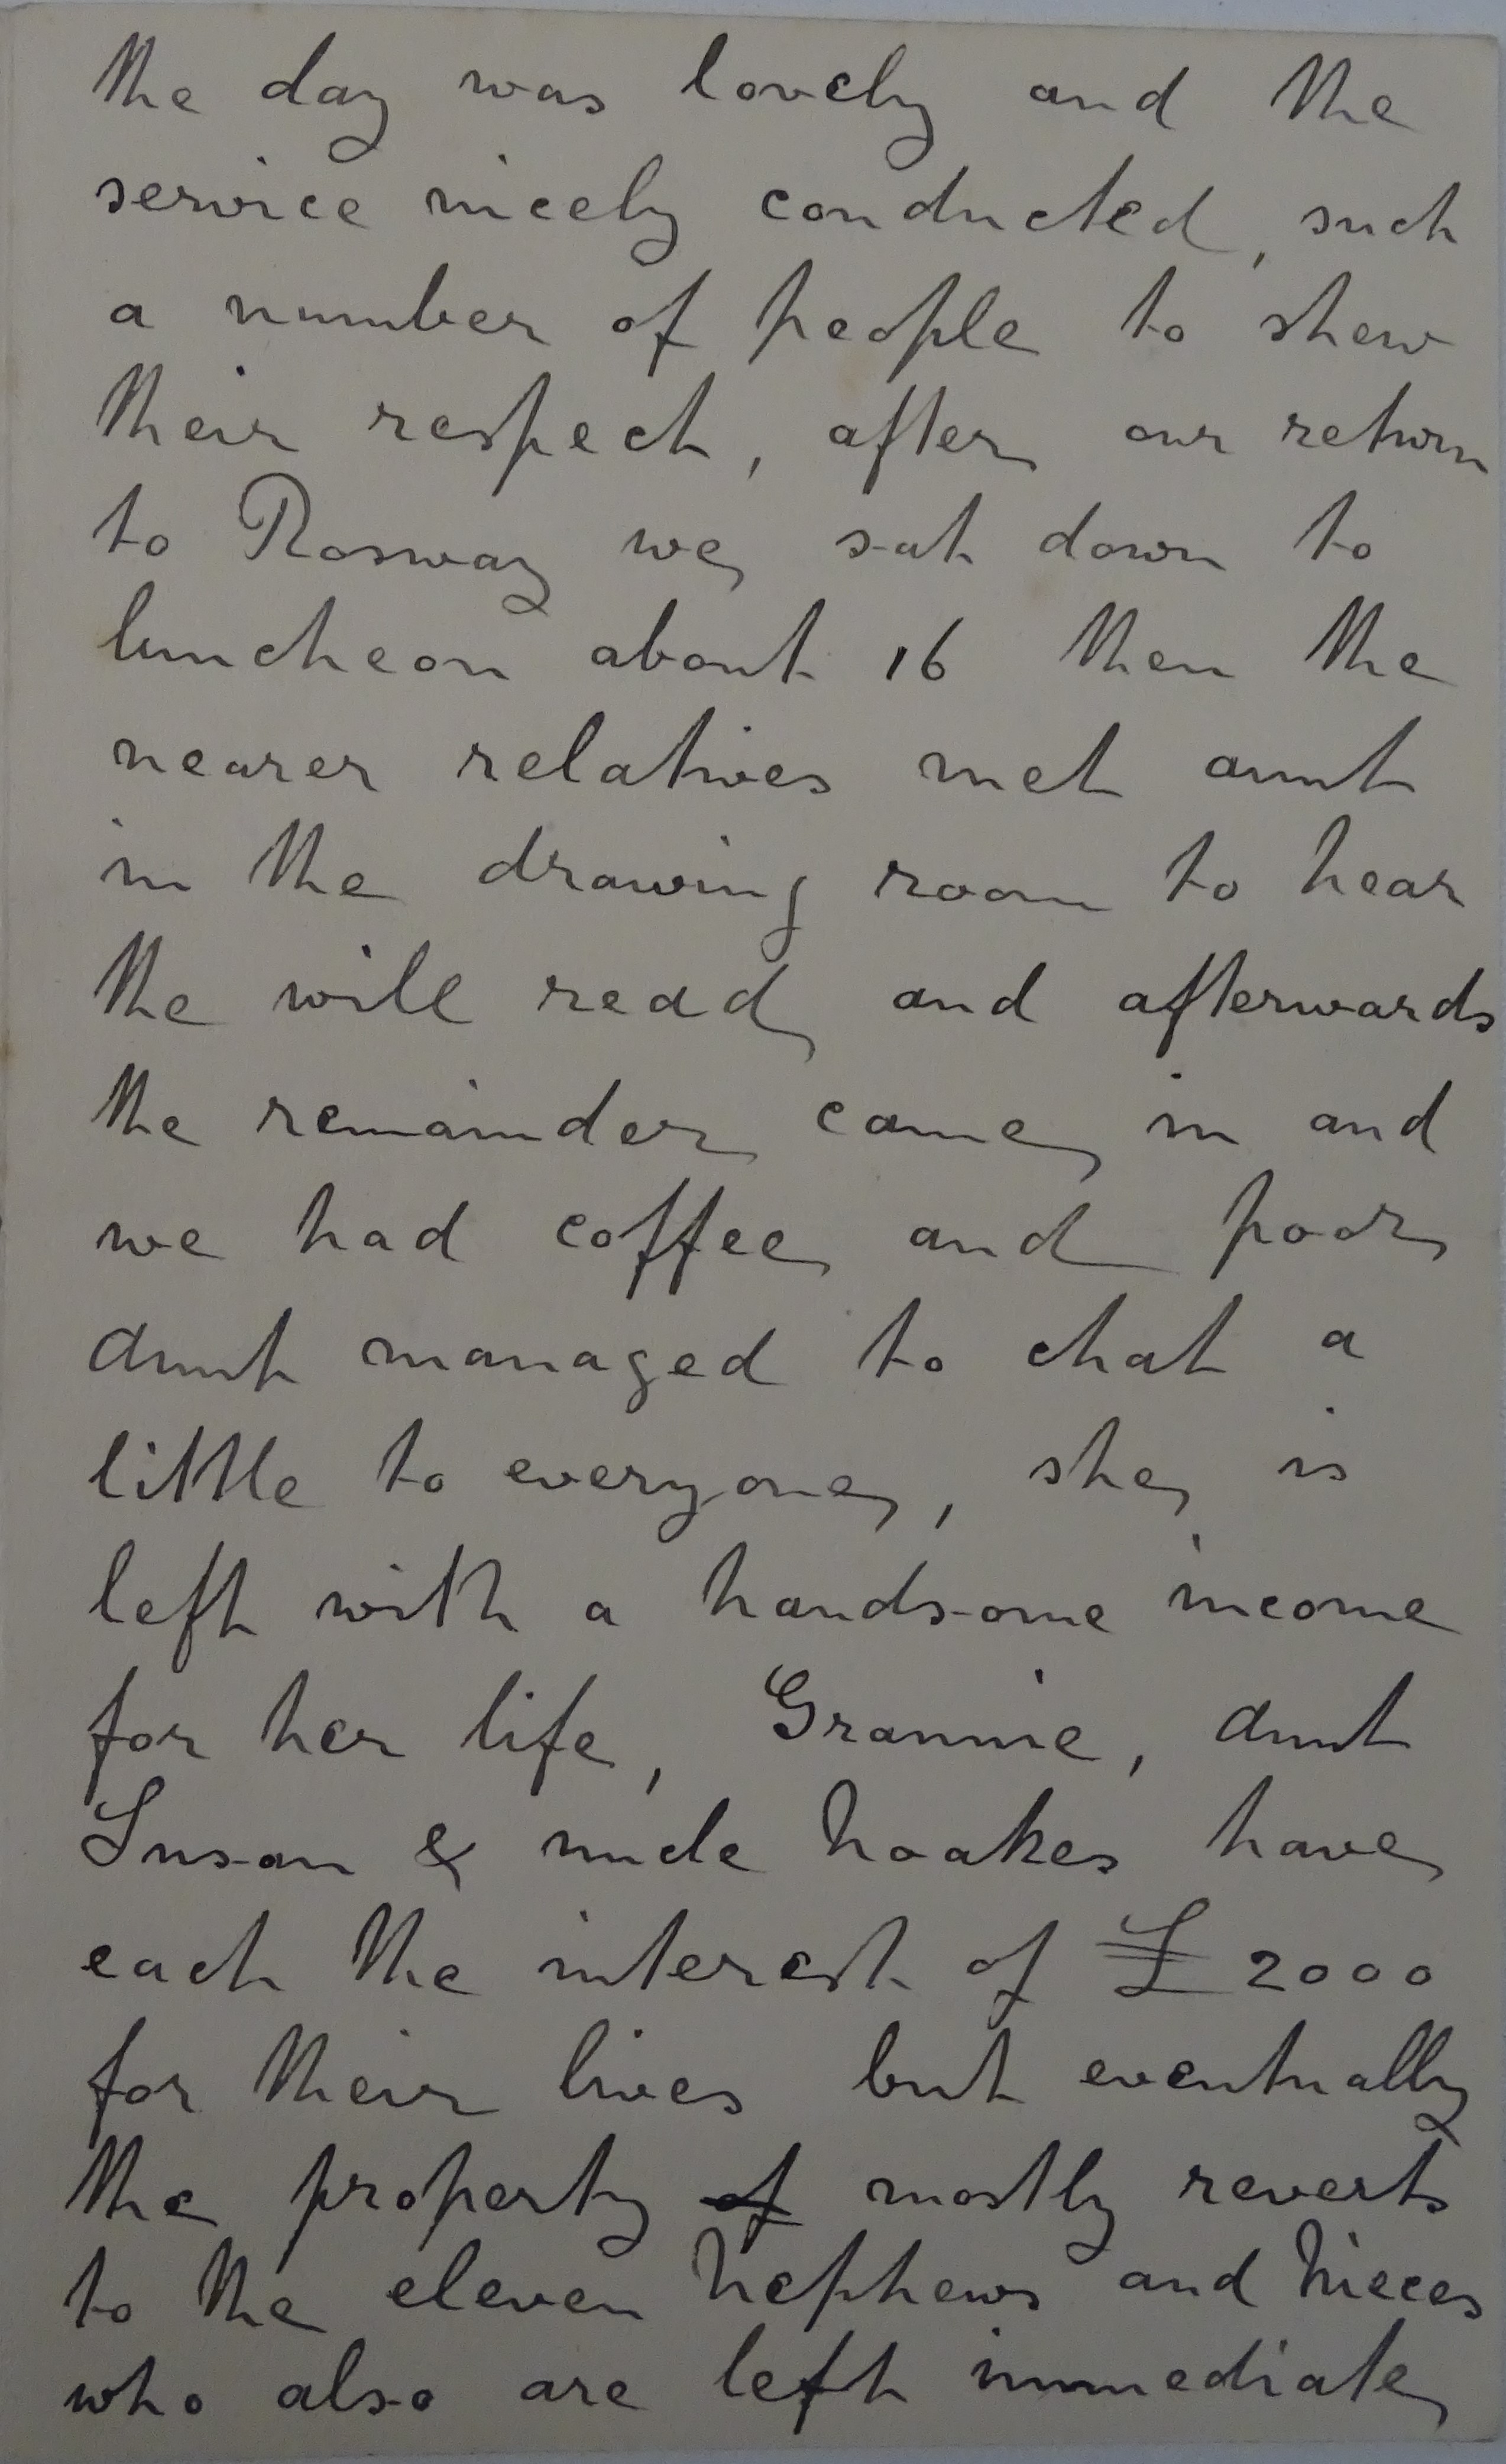 the day was lovely and the
service nicely conducted, such
a number of people to shew
their respect, after our return
to Rosway we sat down to
luncheon about 16 then the
nearer relatives met aunt
in the drawing room to hear
the will read and afterwards
the remainder came in and
we had coffee and poor
Aunt managed to chat a
little to everyone, she is
left with a handsome income
for her life, Grannie, Aunt
Susan & uncle Noakes have
each the interest of £2000
for their lives but eventually
the property of mostly reverts
to the eleven Nephews and Nieces
who also are left immediate